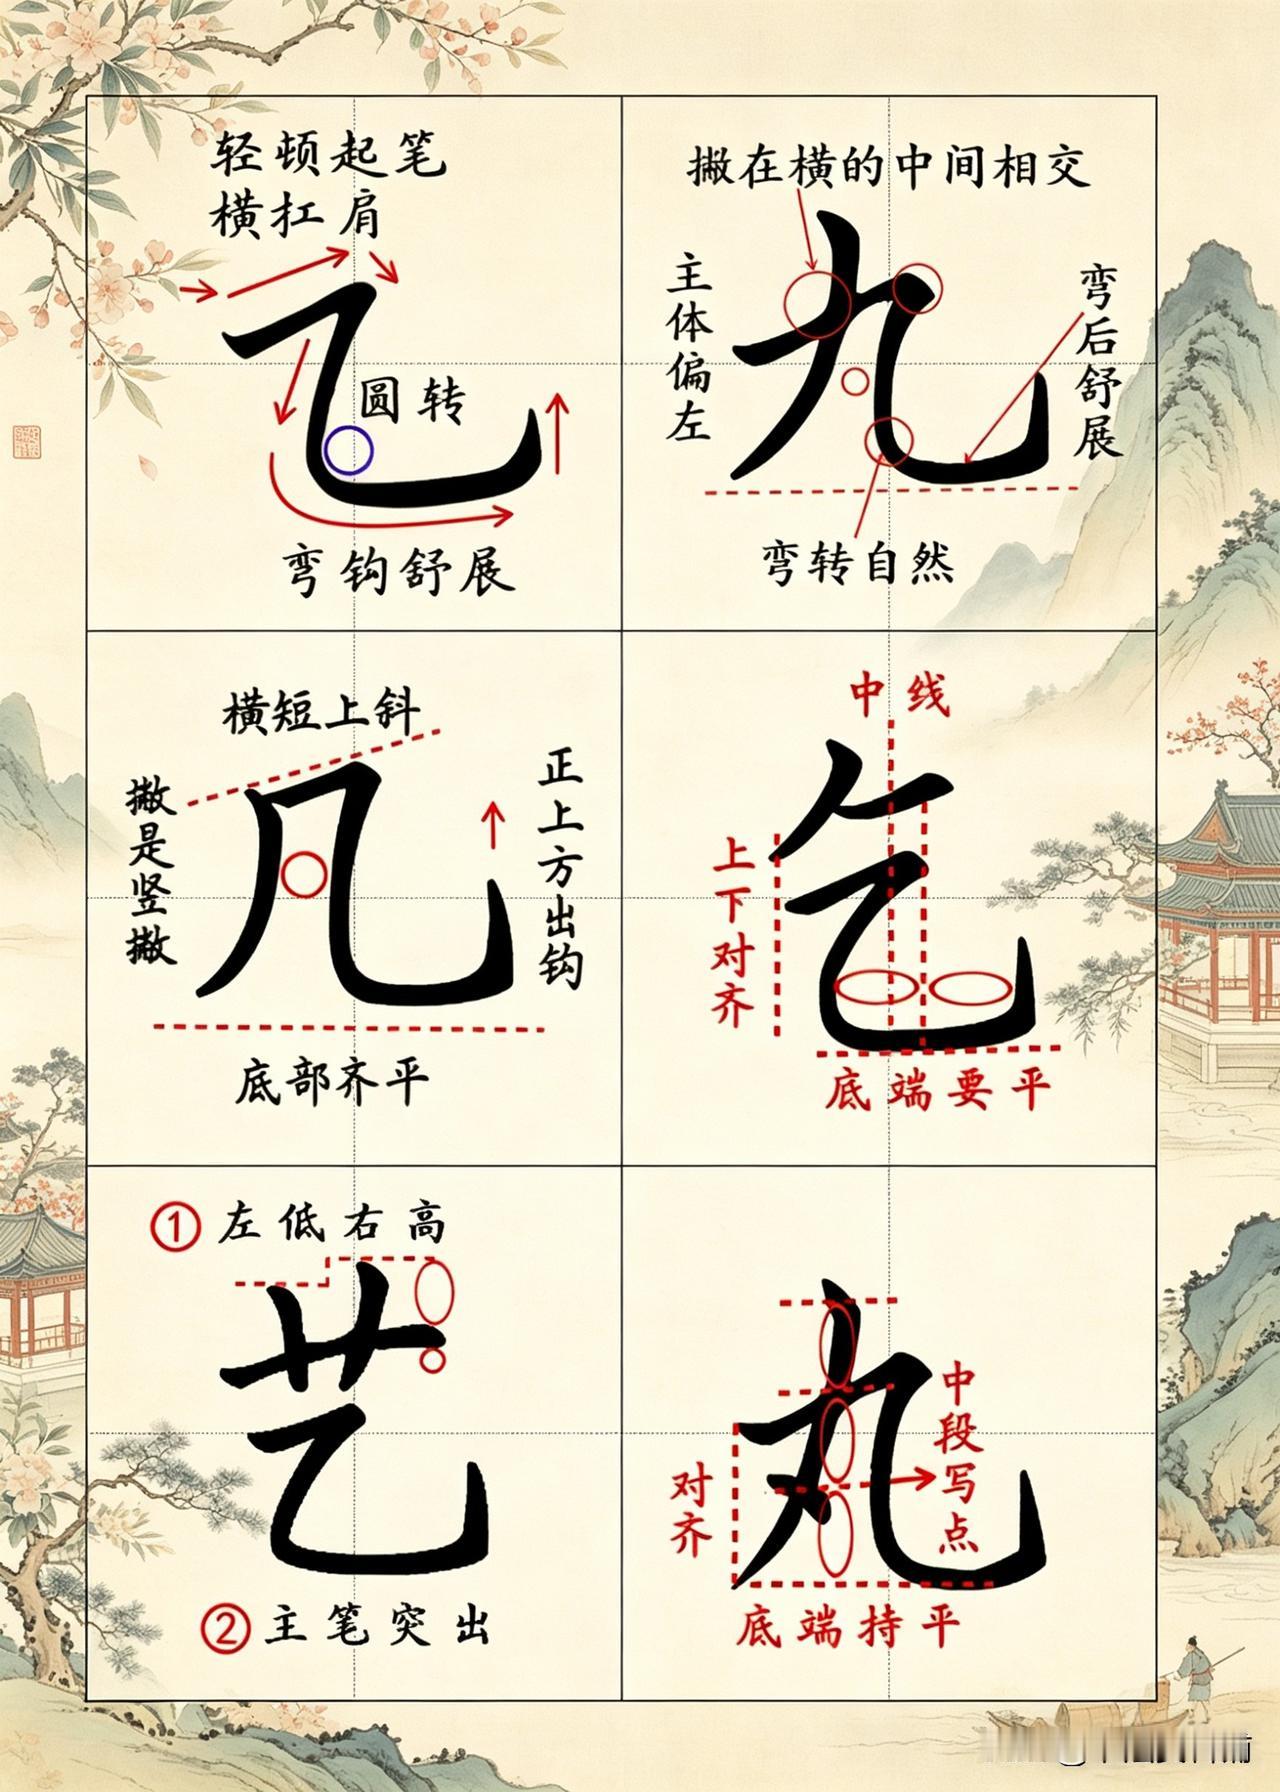 轻顿起笔
横扛肩
乙
圆转
弯钩舒展
撇在横的中间相交
主体偏左
九
弯后舒展
弯转自然
横短上斜
撇是竖撇
几
正上方出钩
底部齐平
中线
上下对齐
乞
底端要平
①左低右高
艺
②主笔突出
丸
中段写点
对齐
底端持平